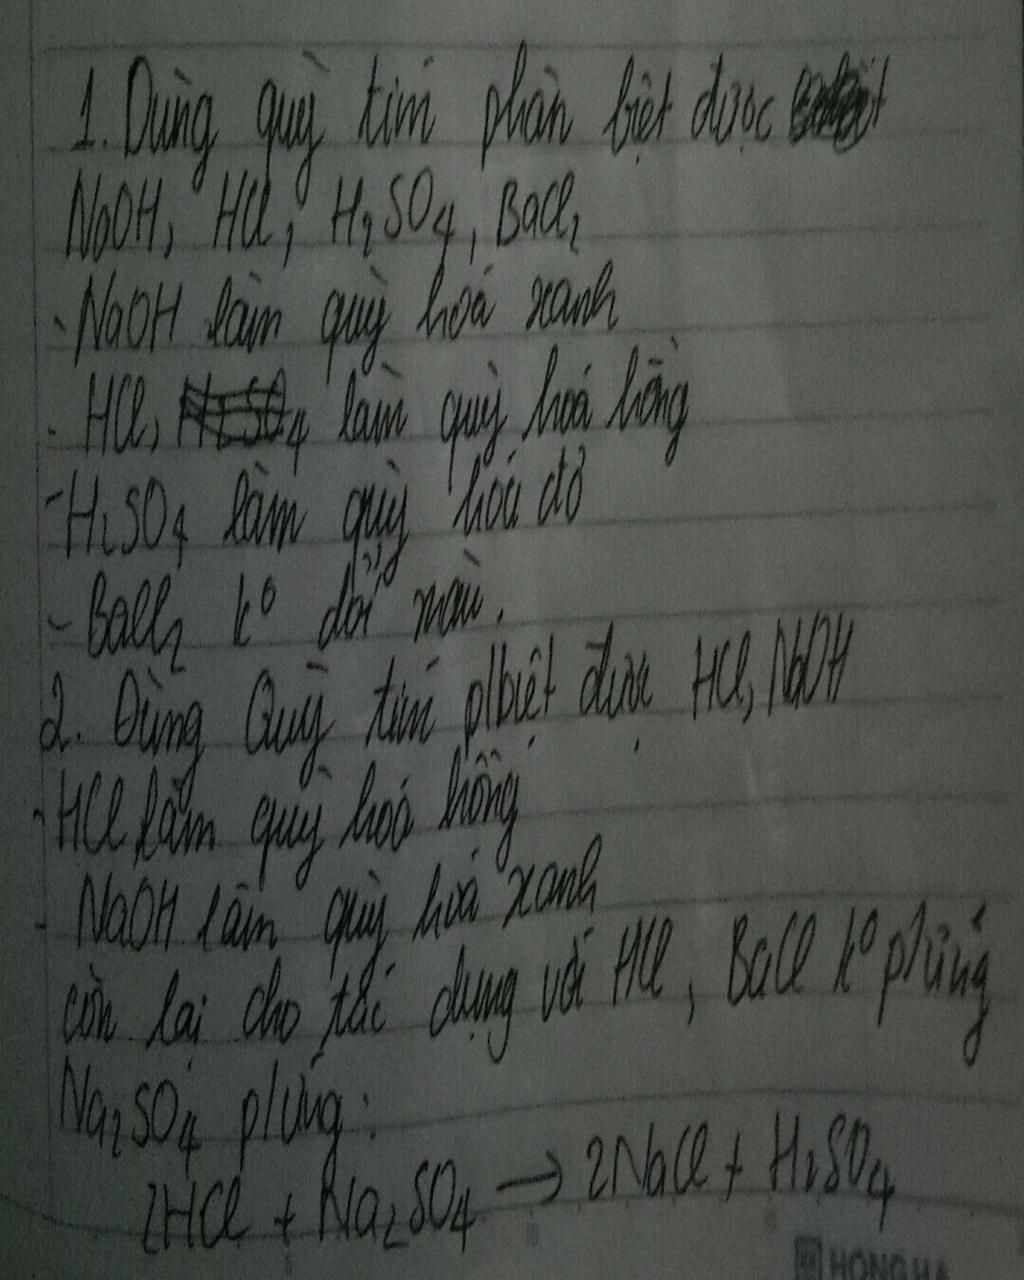 1. Dùng quỳ tím phân biệt được
NaOH, HCl, H₂SO₄, BaCl₂
- NaOH làm quỳ hoá xanh
- HCl, làm quỳ hoá hồng
- H₂SO₄ làm quỳ hoá đỏ
- BaCl₂ kº đổi màu.
2. Dùng Quỳ tím p/biệt được HCl, NaOH
- HCl làm quỳ hoá hồng
- NaOH làm quỳ hoá xanh
còn lại cho tác dụng với HCl, BaCl kº p/ứng
Na₂SO₄ p/ứng:
2HCl + Na₂SO₄ → 2NaCl + H₂SO₄
HONG HA